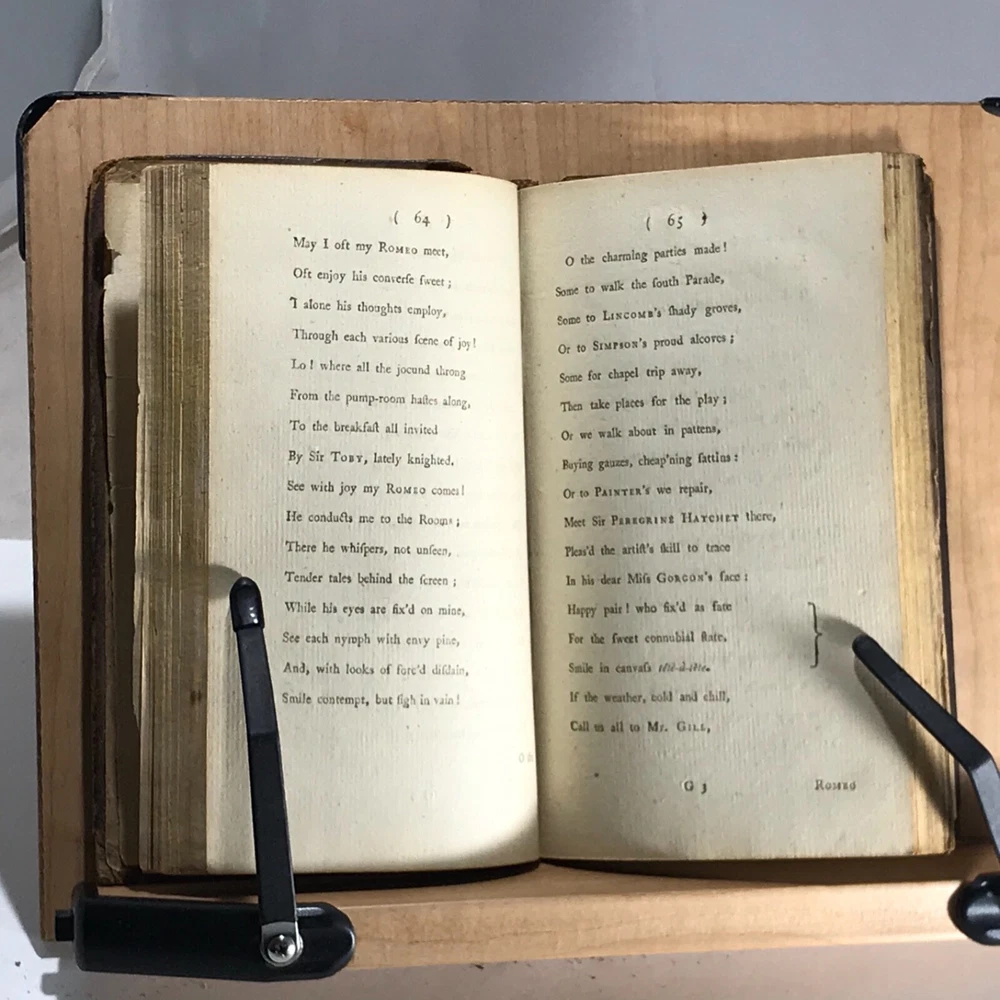 ( 64 )
May I oft my ROMEO meet,
Oft enjoy his converſe ſweet ;
I alone his thoughts employ,
Through each various ſcene of joy!
Lo ! where all the jocund throng
From the pump-room haſtes along,
To the breakfaſt all invited
By Sir TOBY, lately knighted.
See with joy my ROMEO comes!
He conducts me to the Rooms ;
There he whiſpers, not unſeen,
Tender tales behind the ſcreen ;
While his eyes are fix'd on mine,
See each nymph with envy pine,
And, with looks of forc'd diſdain,
Smile contempt, but ſigh in vain !
( 65 )
O the charming parties made !
Some to walk the ſouth Parade,
Some to LINCOMB'S ſhady groves,
Or to SIMPSON'S proud alcoves ;
Some for chapel trip away,
Then take places for the play ;
Or we walk about in pattens,
Buying gauzes, cheap'ning ſattins :
Or to PAINTER'S we repair,
Meet Sir PEREGRINE HATCHET there,
Pleas'd the artiſt's ſkill to trace
In his dear Miſs GORGON'S face :
Happy pair ! who fix'd as fate
For the ſweet connubial ſtate,
Smile in canvaſs tête-à-tête.
If the weather, cold and chill,
Call us all to Mr. GILL,
G 3 ROMEO